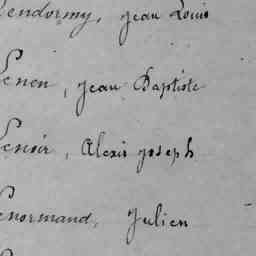 Lendormy, Jean Louis
Lenen, Jean Baptiste
Lenoir, Alexis Joseph
Lenormand, Julien